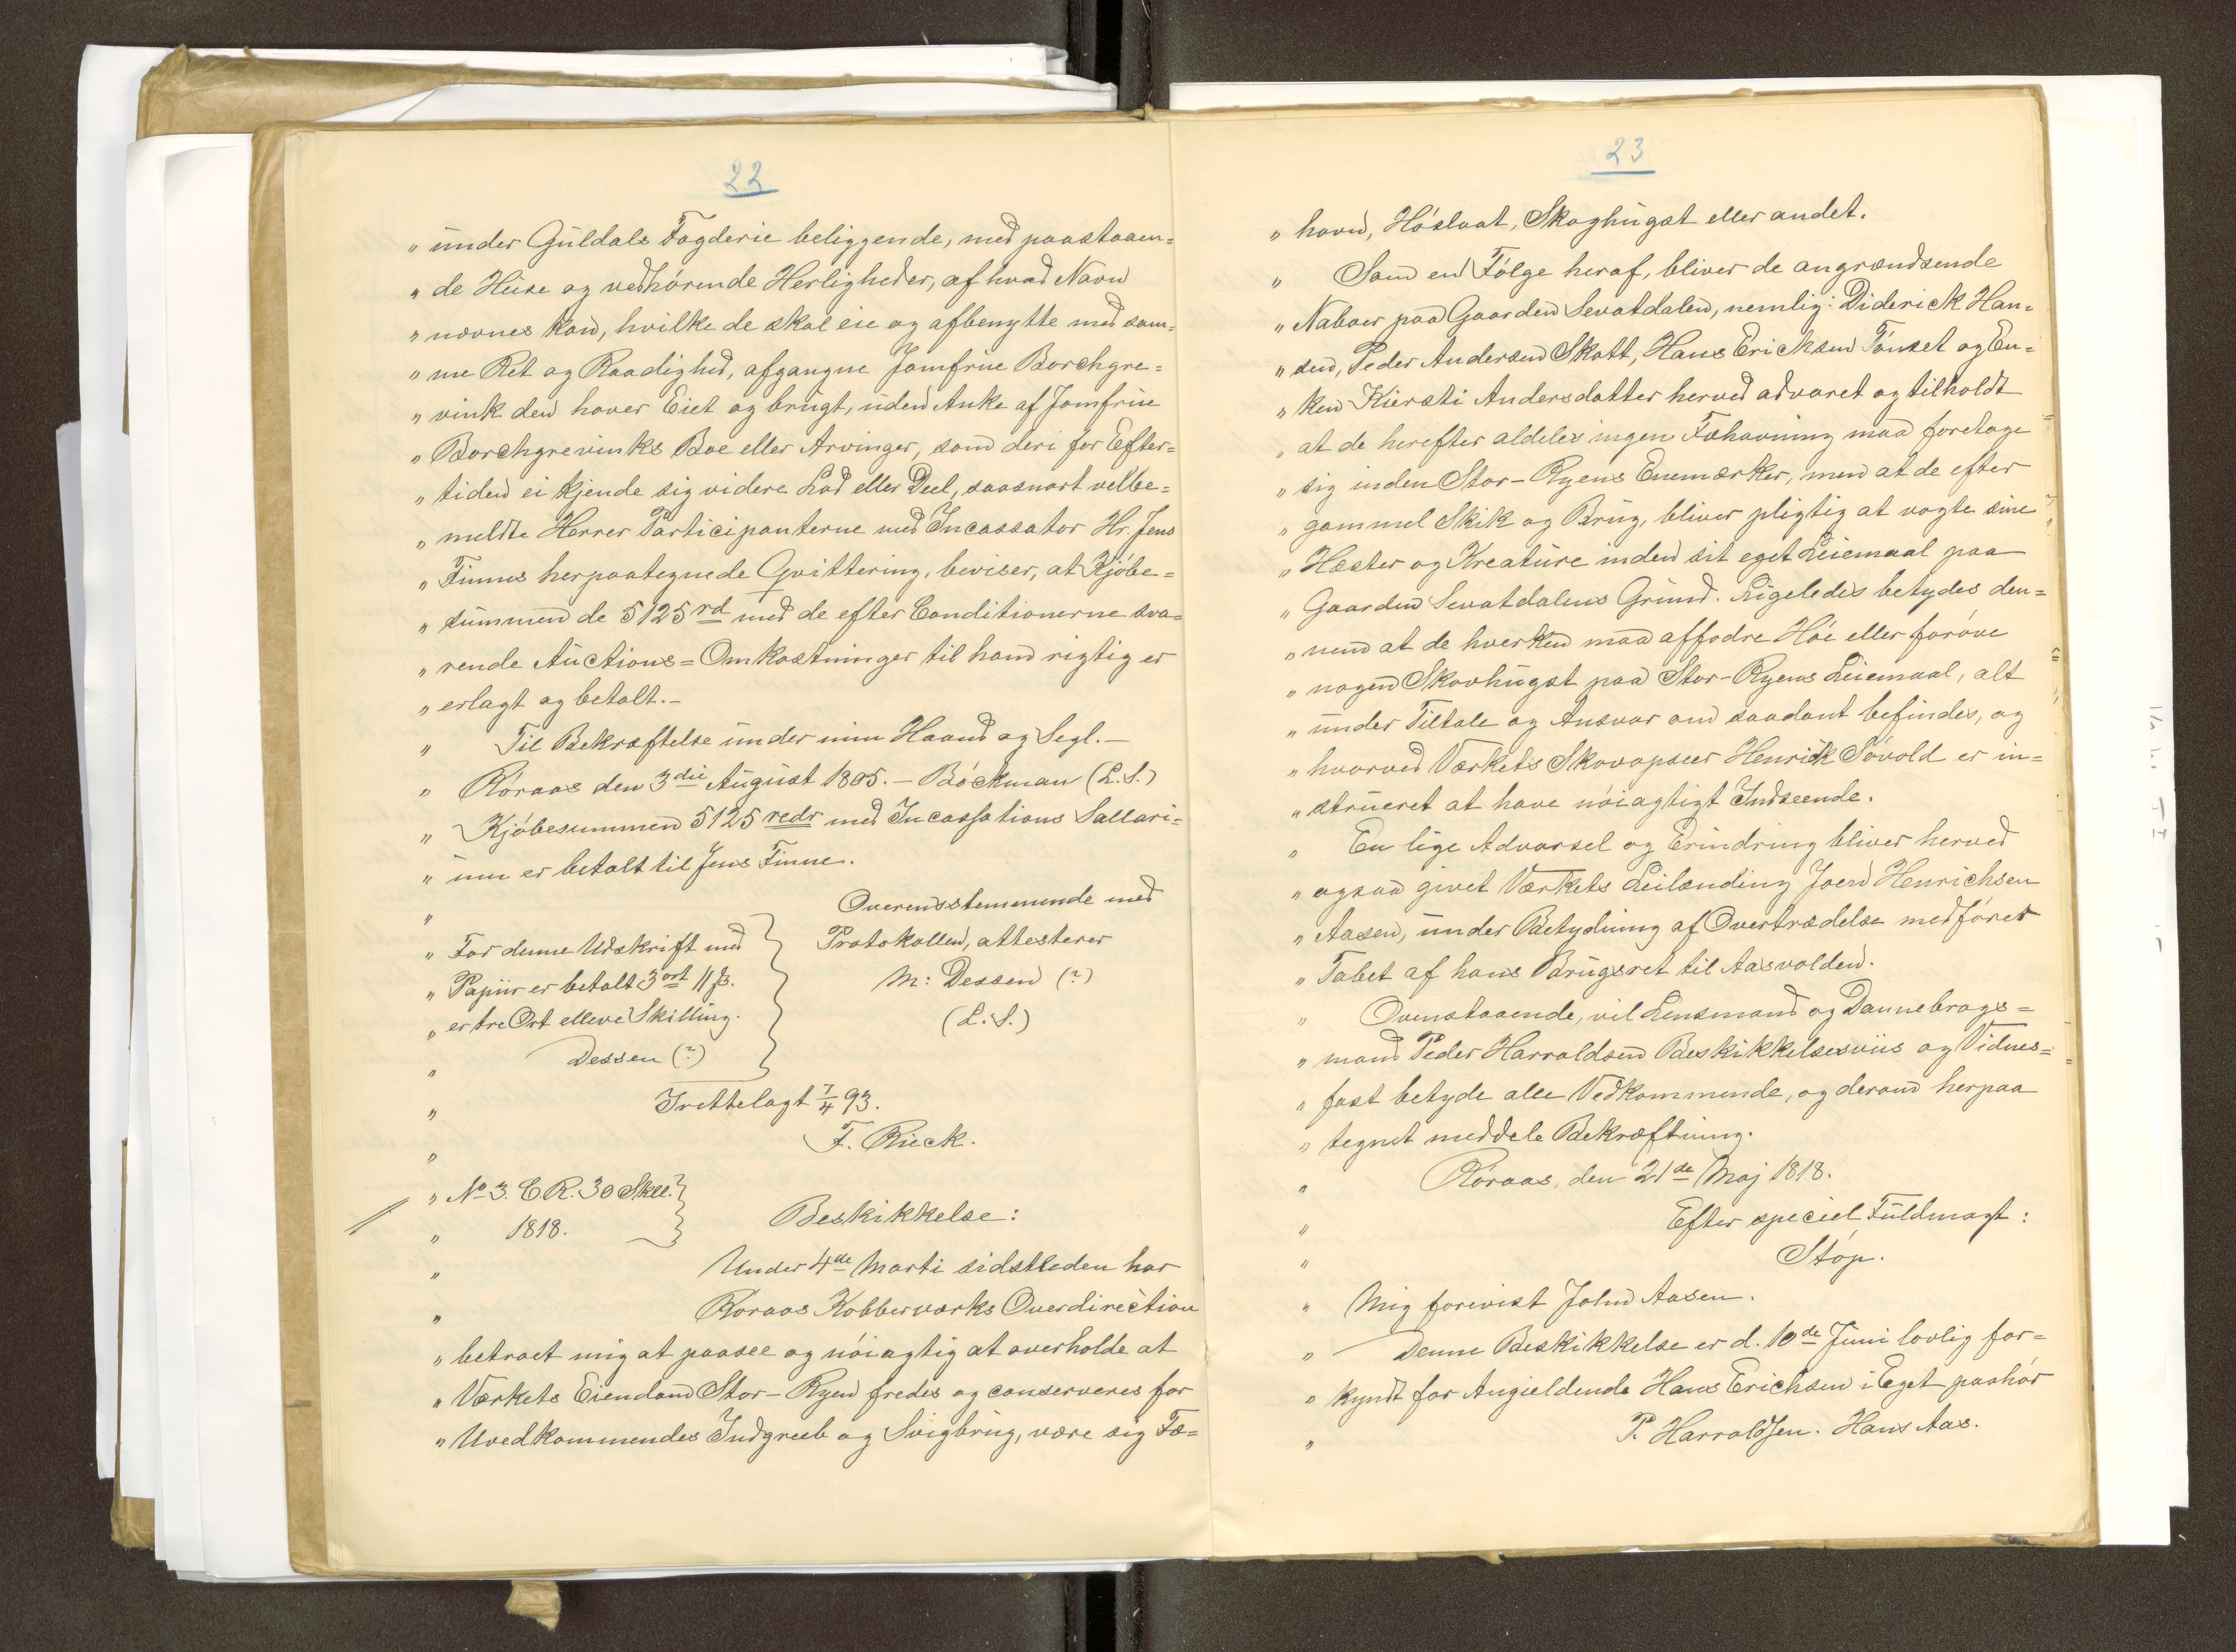 22
„ under Guldals Fogderie beliggende, med paastaaen=
„ de Huse og vedhørende Herligheder, af hvad Navn
„ nævnes kan, hvilke de skal eie og afbenytte med sam=
„ me Ret og Raadighed, afgangne Jomfrue Borchgre=
„ vink den haver Eiet og brugt, uden Anke af Jomfrue
„ Borchgrevinks Boe eller Arvinger, som deri for Efter=
„ tiden ei kjende sig videre Lod eller Deel, saasnart velbe=
„ meldte Herrer Participanterne med Incassator Hr. Jens
„ Finnes herpaategnede Qvittering, beviser, at Kjøbe=
„ summen de 5125 rd med de efter Conditionerne sva=
„ rende Auctions=Omkostninger til ham rigtig er
„ erlagt og betalt.—
„ Til Bekræftelse under min Haand og Segl.—
„ Røraas den 3die August 1805.— Bøckman (L.S.)
„ Kjøbesummen 5125 redr med Incassations Sallari=
„ um er betalt til Jens Finne.
„ Overensstemmende med
„ For denne Udskrift med } Protokollen, attesterer
„ Papiir er betalt 3 ort 11 ß. M: Dessen (?)
„ er tre Ort elleve Skilling. (L.S.)
„ Dessen (?)
„ Irettelagt 7/4 93.
„ F. Rieck.
„ No 3. C R. 30 Skll. }
„ 1818. Beskikkelse:
„ Under 4de Marti sidstleden har
„ Roraas Kobberværks Overdirection
„ betroet mig at paasee og nøiagtig at overholde at
„ Værkets Eiendom Stor-Ryen fredes og conserveres for
„ Uvedkommendes Indgreeb og Svigbrug, være sig Fæ=
23
„ havn, Høslaat, Skoghugst eller andet.
„ Som en Følge heraf, bliver de angrændsende
„ Naboer paa Gaarden Sevatdalen, nemlig: Diderick Han=
„ sen, Peder Andersen Skott, Hans Erichsen Tønset og En=
„ ken Kiersti Andersdatter herved advaret og tilholdt
„ at de herefter aldeles ingen Fæhavning maa foretage
„ sig inden Stor-Ryens Enemærker, men at de efter
„ gammel Skik og Brug, bliver pligtig at vogte sine
„ Hæster og Kreature inden sit eget Leiemaal paa
„ Gaarden Sevatdalens Grund. Ligeledes betydes den=
„ nem at de hverken maa affodre Høe eller forøve
„ nogen Skovhugst paa Stor-Ryens Leiemaal, alt
„ under Tiltale og Ansvar om saadant befindes, og
„ hvorved Værkets Skovopseer Henrick Søvold er in=
„ strueret at have nøiagtigt Indseende.
„ En lige Advarsel og Erindring bliver herved
„ ogsaa givet Værkets Leilænding Joen Henrichsen
„ Aasen, under Betydning af Overtrædelse medfører
„ Tabet af hans Brugsret til Aasvolden.
„ Ovenstaaende, vil Lensmand og Dannebrogs=
„ mand Peder Harroldsen Beskikkelsesviis og Vidnes=
„ fast betyde alle Vedkommende, og derom herpaa
„ tegnet meddele Bekræftning.
„ Røraas, den 21de Maj 1818.
„ Efter speciel Fuldmagt:
„ Støp.
„ Mig forevist John Aasen.
„ Denne Beskikkelse er d. 10de Juni lovlig for=
„ kyndt for Angieldende Hans Erichsen i Eget paahør
„ P. Harroldsen. Hans Aas.